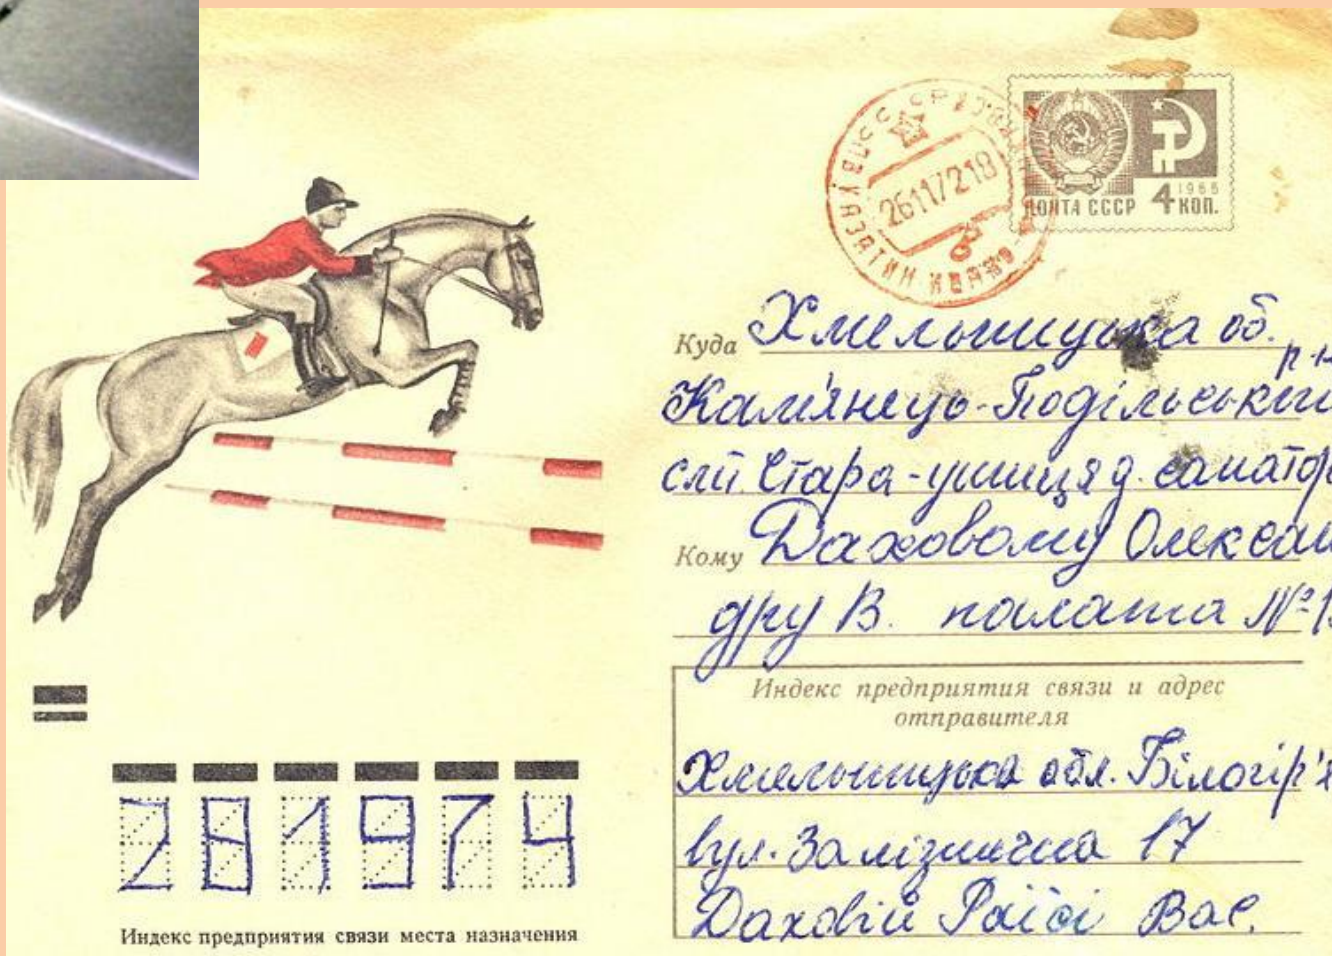 26117218
1966
ПОЧТА СССР 4 КОП.
Куда Хмельницька об.
р-н
Кам'янець-Подільський
смт. Стара-ушиця д. санатор
Кому Даховому Олексан
дру В. палата №
Индекс предприятия связи и адрес
отправителя
Хмельницька обл. Білогір'я
вул. Залізнична 17
Даховій Раїсі Вас.
281974
Индекс предприятия связи места назначения